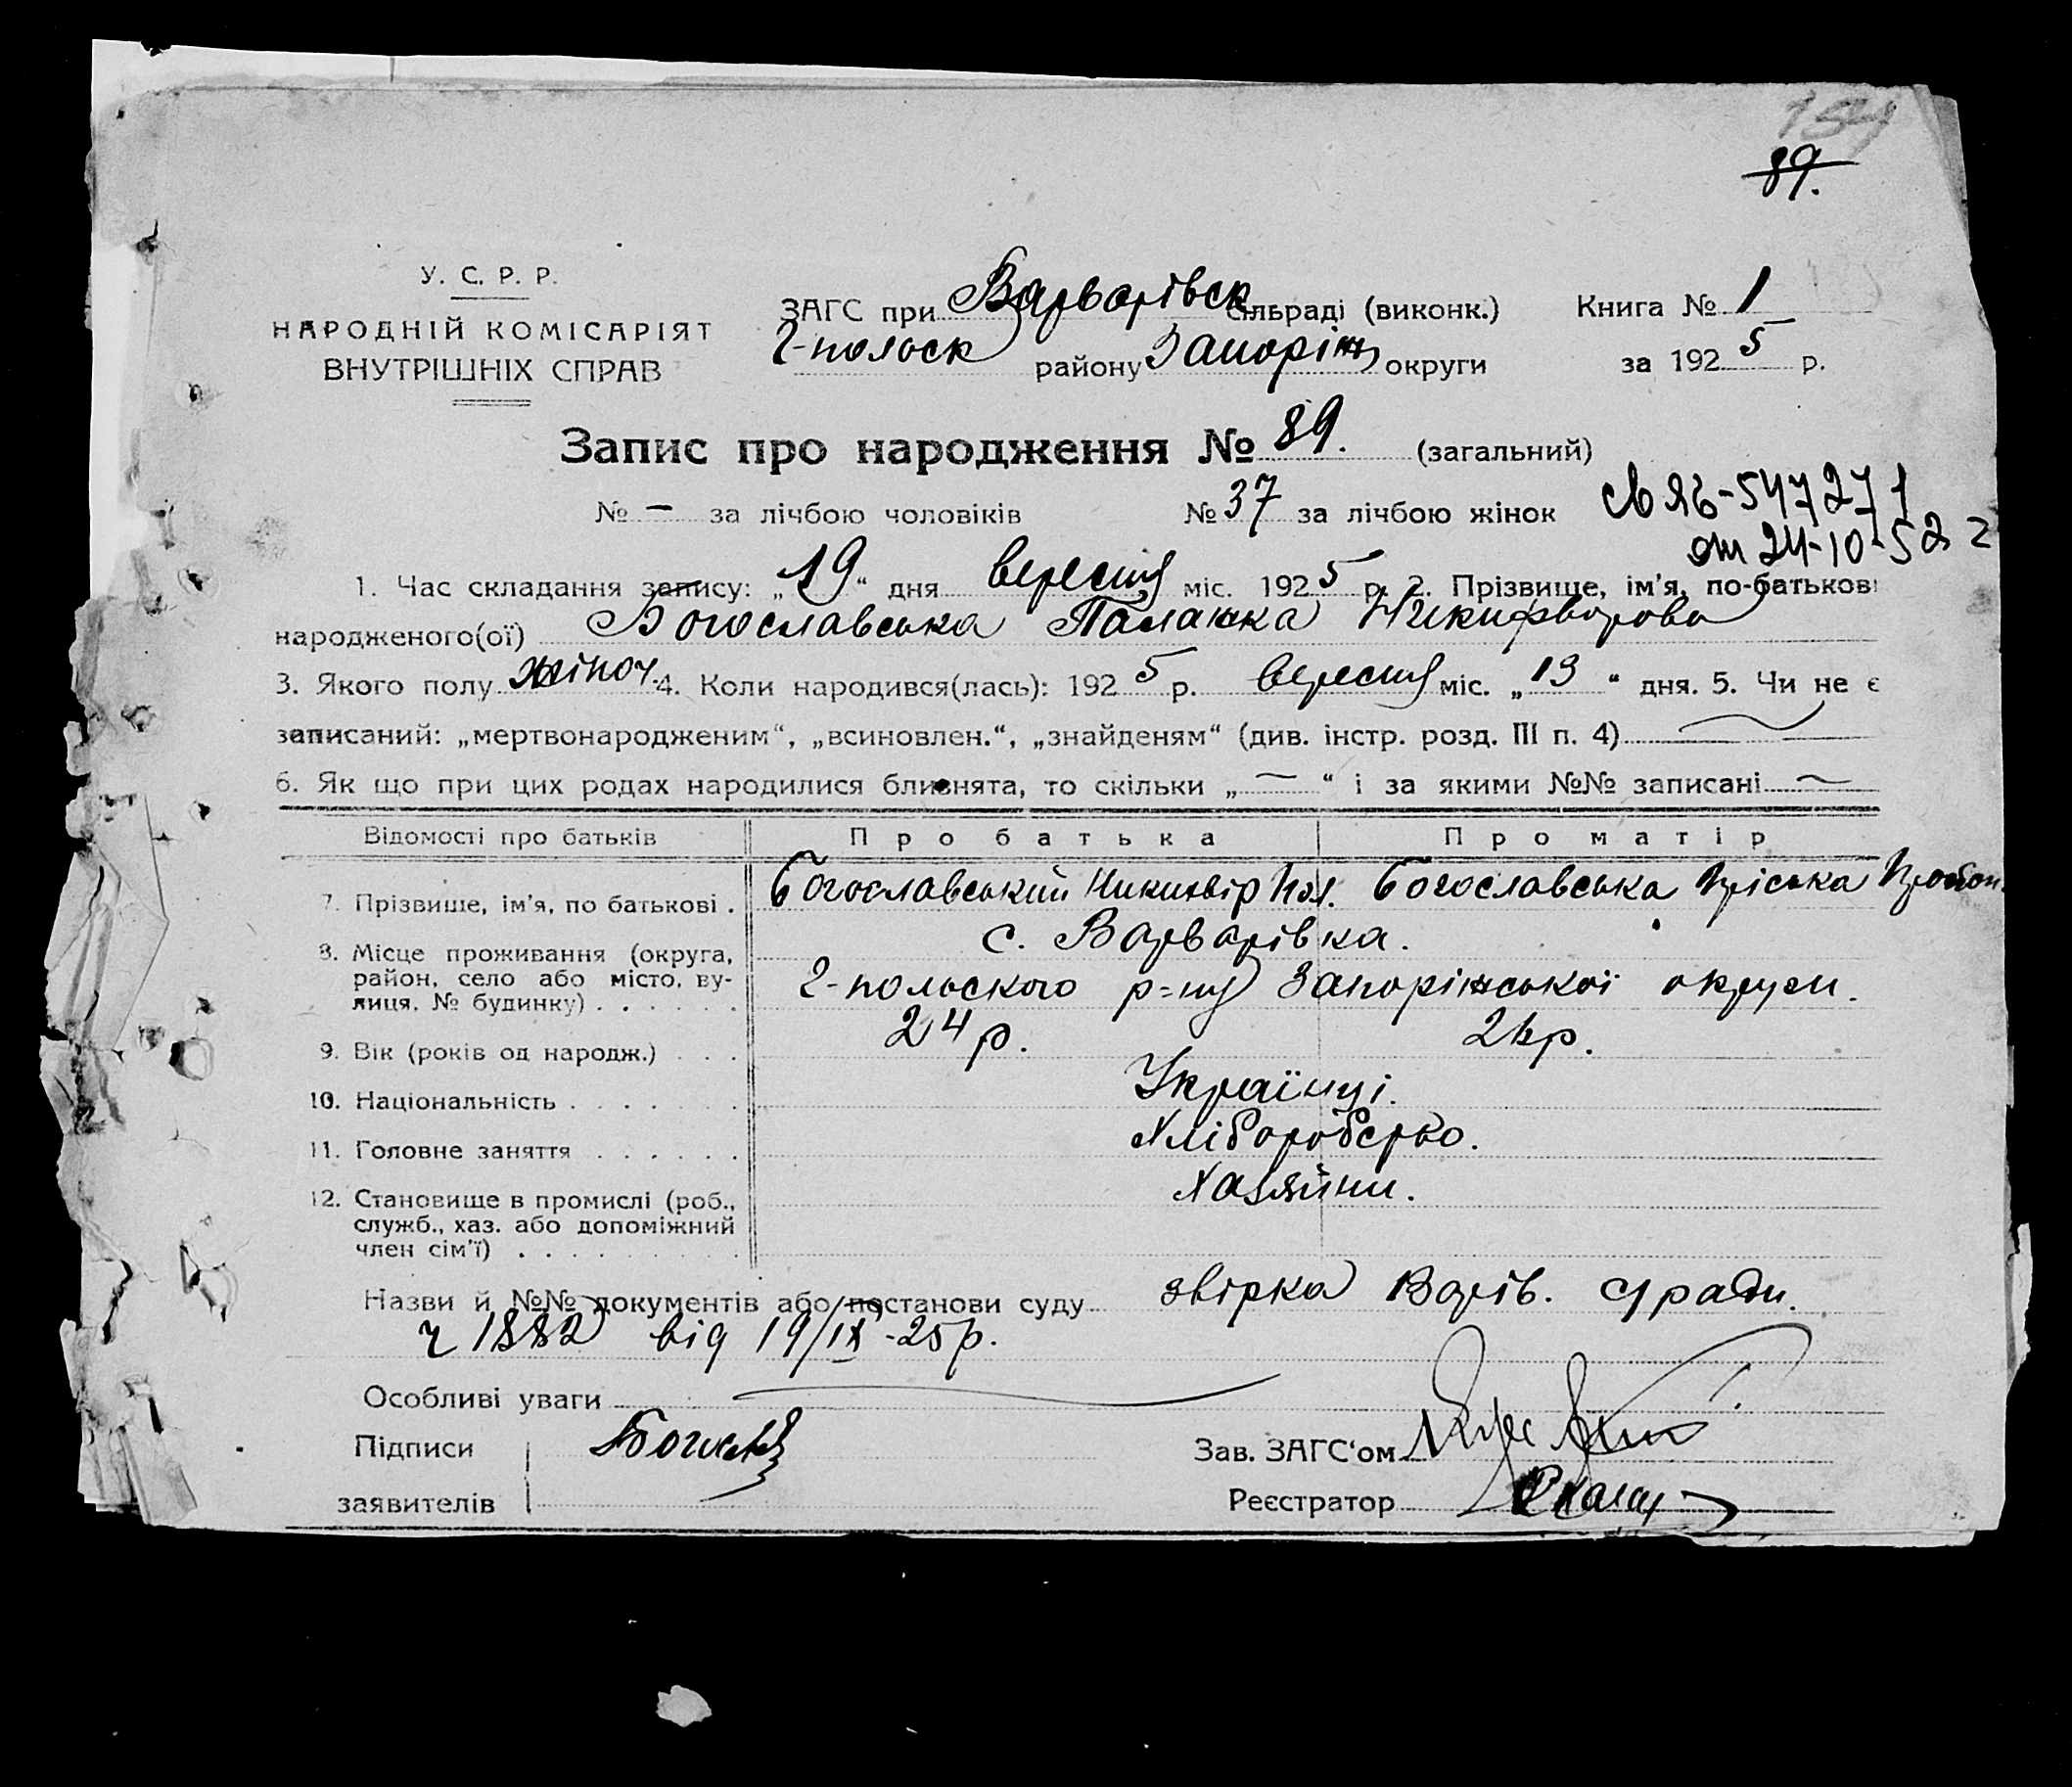 154
89.
У. С. Р. Р.
НАРОДНІЙ КОМІСАРІЯТ
ВНУТРІШНІХ СПРАВ
ЗАГС при Варварівск сільраді (виконк.)
Г-польск району Запоріж округи
Книга № 1
за 1925 р.
Запис про народження № 89. (загальний)
№ — за лічбою чоловіків № 37 за лічбою жінок
св ЯБ-547271
от 24-10-52 г
1. Час складання запису: „19“ дня вересня міс. 1925 р. 2. Прізвище, ім'я, по-батькові
народженого(ої) Богославська Палажка Никифорова
3. Якого полу жіноч. 4. Коли народився(лась): 1925 р. вересня міс. „13“ дня. 5. Чи не є
записаний: „мертвонародженим“, „всиновлен.“, „знайденям“ (див. інстр. розд. III п. 4) —
6. Як що при цих родах народилися близнята, то скільки „—“ і за якими №№ записані —
Відомості про батьків Про батька Про матір
7. Прізвище, ім'я, по батькові . Богославський Никифір Богославська Пріська
8. Місце проживання (округа, район, село або місто, ву-
лиця, № будинку) . . . . . .
с. Варварівка.
Г-польского р-ну Запоріжської округи.
9. Вік (років од народж.) . . . 24 р. р.
10. Національність . . . . . . . Українці.
11. Головне заняття . . . . . . Хліборобство.
12. Становище в промислі (роб.,
служб., хаз. або допоміжний
член сім'ї) . . . . . . . . . Хазяїни.
Назви й №№ документів або постанови суду звірка Варів. с/ради.
ч 1882 від 19/IX-25 р.
Особливі уваги
Підписи
заявителів
Зав. ЗАГС'ом
Реєстратор